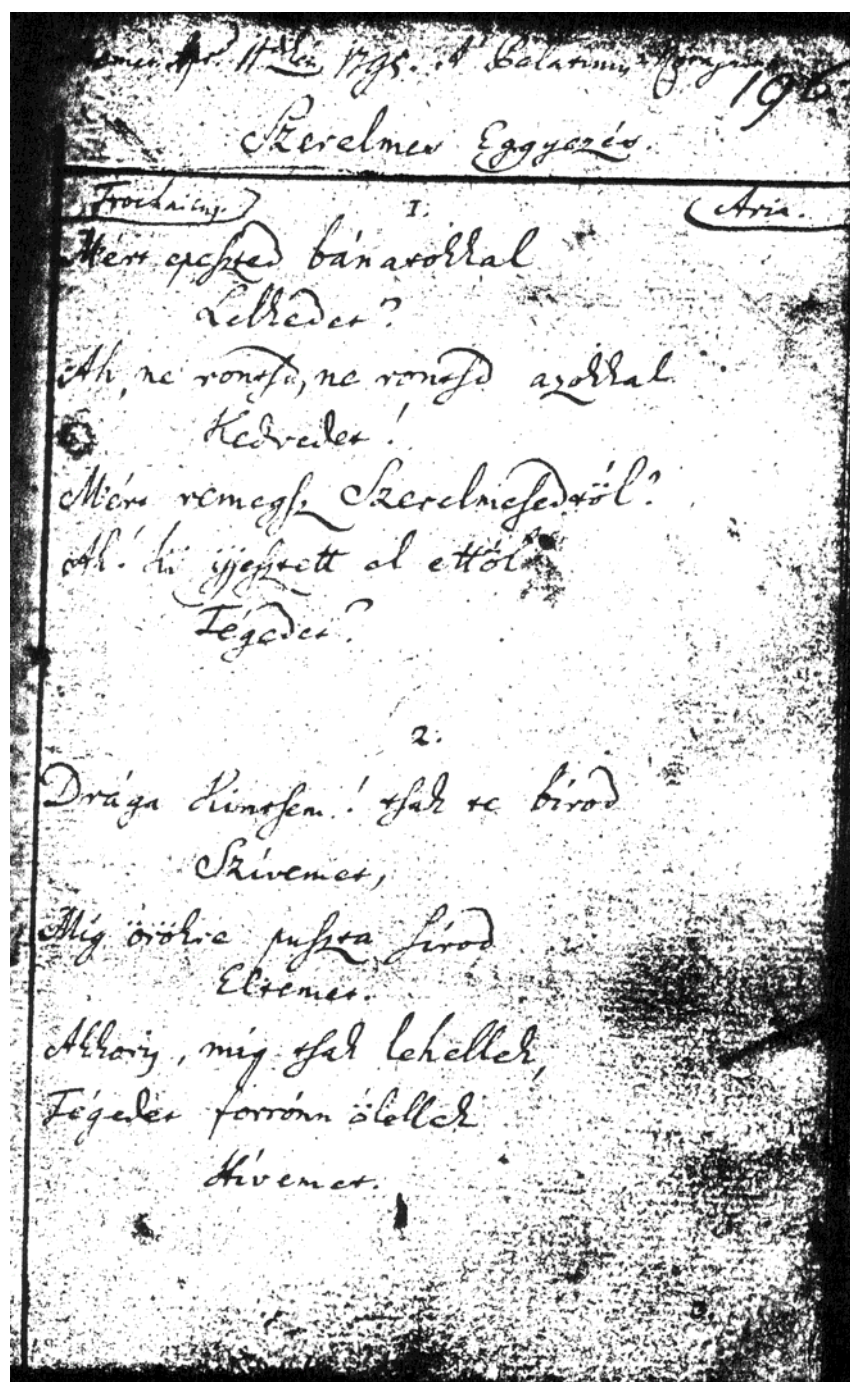 1795. A' Palatinus
196
Szerelmes Eggyezés.
Trochaicus. 1. Aria.
Mért epeszted bánatokkal
Lelkedet?
Ah, ne rontsd, ne rontsd azokkal
Kedvedet!
Mért remegsz Szerelmesedtöl?
Ah! ki ijjesztett el ettöl
Tégedet?
2.
Drága Kintsem! tsak te birod
Szívemet,
Míg örökre puszta sírod
Eltemet.
Akkorig, míg tsak lehellek,
Tégedet forrónn ölellek
Hívemet.
3.